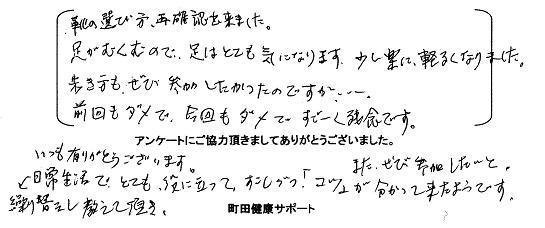 靴の選び方、再確認出来ました。
足がむくむので、足はとても気になります。少し楽に、軽るくなりました。
歩き方も、ぜひ参加したかったのですが、、、
前回もダメで、今回もダメですごーく残念です。
アンケートにご協力頂きましてありがとうございました。
いつも有りがとうございます。
また、ぜひ参加したいと。
日常生活で、とても、役に立って、すこしづつ「コツ」が分かって来たようです。
繰り替えし教えて頂き、
町田健康サポート